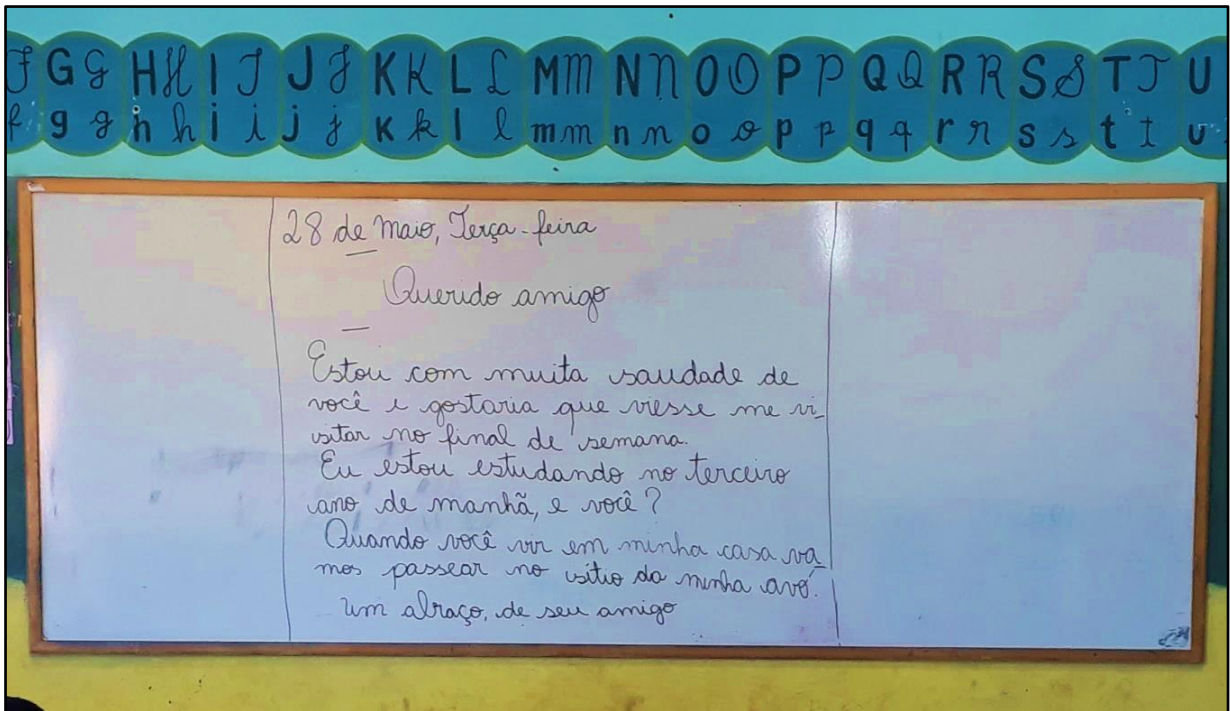 F G G H H I I J J K K L L M M N N O O P P Q Q R R S S T T U
f g g h h i i j j k k l l m m n n o o p p q q r r s s t t u
28 de Maio, Terça-feira
Querido amigo
Estou com muita saudade de
você e gostaria que viesse me vi_
sitar no final de semana.
Eu estou estudando no terceiro
ano de manhã, e você?
Quando você vir em minha casa va_
mos passear no sítio da minha avó.
Um abraço, de seu amigo